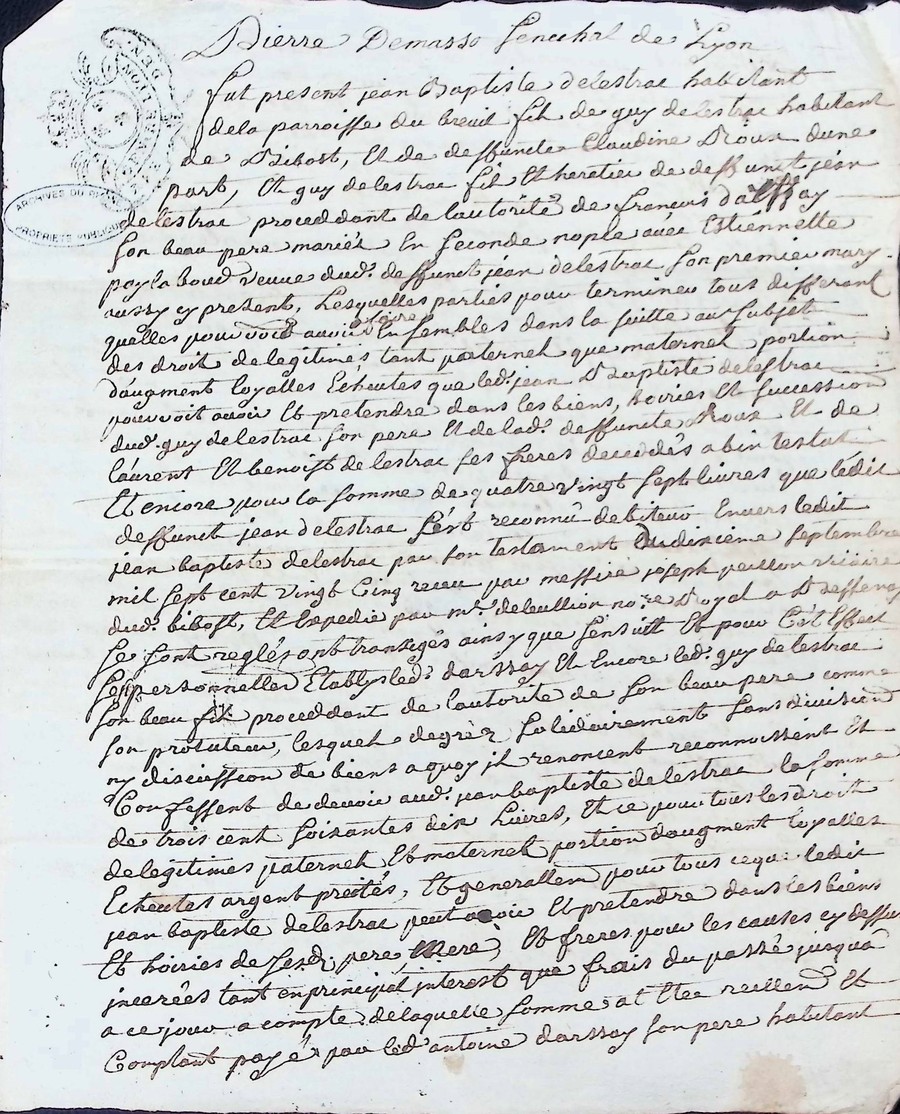 Pierre Demasso Senechal de Lyon
fut present jean Baptiste delestrac habitant
dela parroisse du breuil fil de guy delestrac habitant
de Bibost, et de deffuncte Claudine Roux dune
part, et guy delestrac fil et heretier de deffunct jean
delestrac proceddant de lautorité de francois darssay
son beau pere mariés en seconde nopce avec Estiennette
veuve dud. deffunct jean delestrac son premier mary
aussy cy present, Lesquelles parties pour terminer tous differant
quelles pourroit avoir Ensembles dans la suitte au subjet
des droit delegitimes tant paternel que maternel portion
daugment loyalles Echeutes que led. jean Baptiste delestrac
pouvvoit avoir et pretendre dans les biens, hoiries et succession
dud. guy delestrac son pere et delad. deffuncte Roux et de
laurent et benoist delestrac ses freres decedés abintestat
Et encore pour la somme de quatre vingt sept livres que ledit
deffunct jean delestrac sést reconnû debiteur envers ledit
jean baptiste delestrac par son testament du dixieme septembre
mil sept cent vingt Cinq receu par messire joseph vicaire
dud. bibost, et Expedié par mr. no.re Royal a
se sont reglés ont transigés ainsy que sensuitt et pour Cét Effect
se personnelles Etablys led. darssay et encore led. guy delestrac
son beau fil proceddant de lautorité de son beau pere comme
son protuteur, lesquels degréz solidairement sans division
ny discussion de biens a quoy jl renoncent reconnoissent et
Confessent de devoir aud. jean baptiste delestrac la somme
de trois cent soixantes dix livres, et ce pour tous les droit
delegitimes paternel et maternel portion daugment loyalles
Echeutes argent preités, et generallem pour tous cequi ledit
jean baptiste delestrac peut avoir et pretendre dans les biens
et hoiries de sesd. pere mere, et freres pour les causes cy dessus
incerées tant en principal interest que frais du passé jusqua
a ce jour a compte delaquelle somme at ette reellem et
Comptant payé par led. antoine darssay son pere habitant
ARCHIVES DU
PROPRIETE PUBLIQUE
GEN.
LION